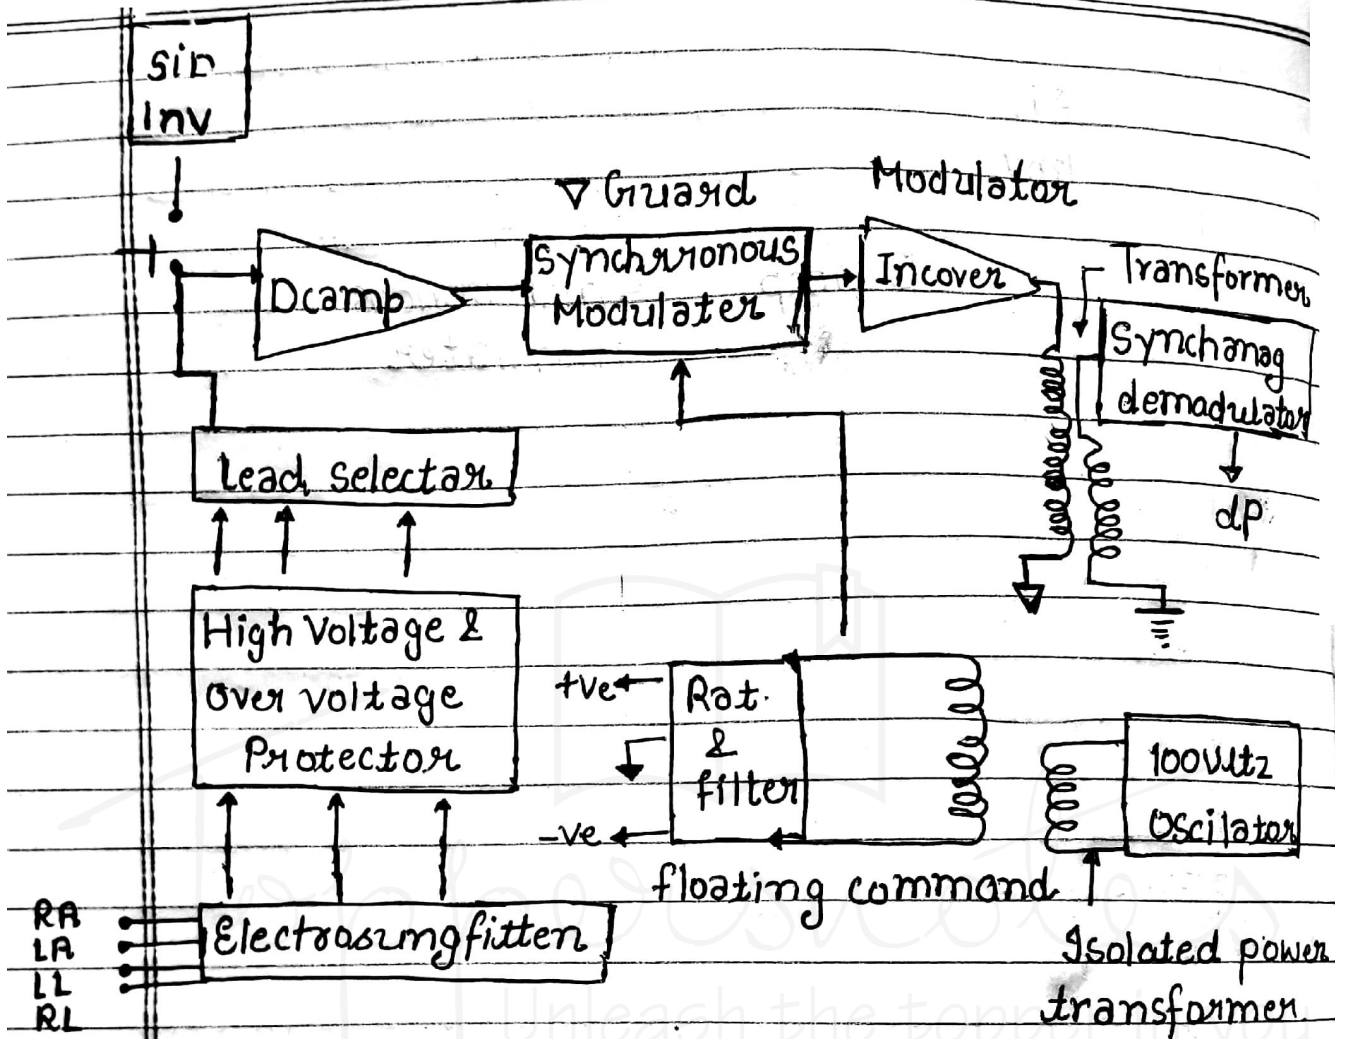 sin
Inv
▽ Guard
Modulator
Dcamp
Synchrronous
Modulater
Incover
Transformer
Synchanag
demadulator
dp
Lead selectar
High Voltage &
Over voltage
Protector
+ve
-ve
Rat.
&
filter
Oscilator
floating command
Isolated power
transformer
RA
LA
LL
RL
Unleash the topper in you